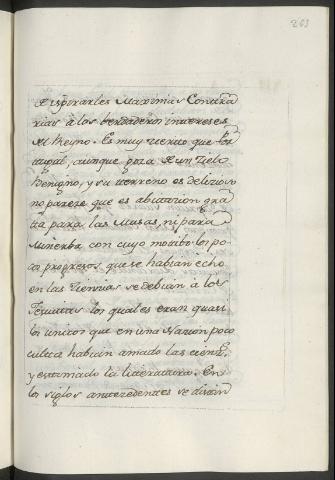 203
Ynspirarles Maximas Contra
rias à los berdaderos intereses
del Reyno. Es muy cierto que Por
tugal, aunque goza de un Zielo
benigno, y su terreno es delizioso
no pareze que es abitacion gra
ta para las Musas, ni para
Minerba con cuyo motibo los po
cos progresos que se habian echo
en las Ziencias se debian à los
Jesuitas los quales eran quasi
los unicos que en una Nazion poco
culta habian amado las cienc.s
y estimado la literatura. En
los siglos antezedentes se distin